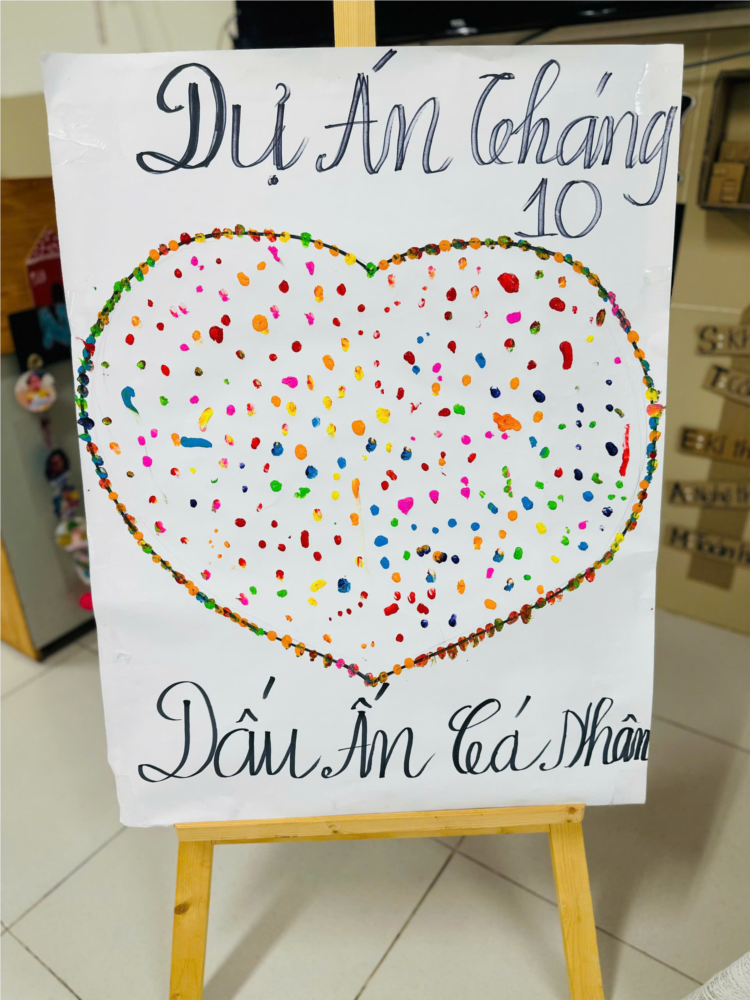 Dự Án Tháng
10
Dấu Ấn Cá Nhân